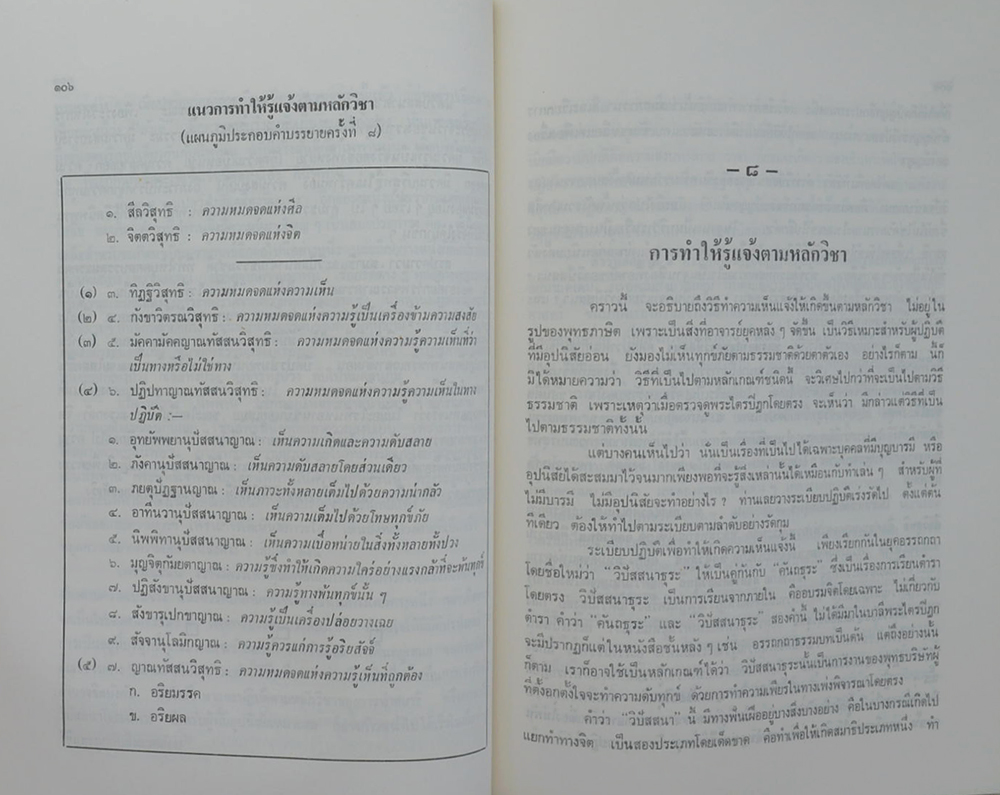 ๑๐๖
แนวการทำให้รู้แจ้งตามหลักวิชา
(แผนภูมิประกอบคำบรรยายครั้งที่ ๘)
๑. สีลวิสุทธิ : ความหมดจดแห่งศีล
๒. จิตตวิสุทธิ : ความหมดจดแห่งจิต
(๑) ๓. ทิฏฐิวิสุทธิ : ความหมดจดแห่งความเห็น
(๒) ๔. กังขาวิตรณวิสุทธิ : ความหมดจดแห่งความรู้เป็นเครื่องข้ามความสงสัย
(๓) ๕. มัคคามัคคญาณทัสสนวิสุทธิ : ความหมดจดแห่งความรู้ความเห็นที่ว่า
เป็นทางหรือไม่ใช่ทาง
(๔) ๖. ปฏิปทาญาณทัสสนวิสุทธิ : ความหมดจดแห่งความรู้ความเห็นในทาง
ปฏิบัติ :—
๑. อุทยัพพยานุปัสสนาญาณ : เห็นความเกิดและความดับสลาย
๒. ภังคานุปัสสนาญาณ : เห็นความดับสลายโดยส่วนเดียว
๓. ภยตุปัฏฐานญาณ : เห็นภาวะทั้งหลายเต็มไปด้วยความน่ากลัว
๔. อาทีนวานุปัสสนาญาณ : เห็นความเต็มไปด้วยโทษทุกข์ภัย
๕. นิพพิทานุปัสสนาญาณ : เห็นความเบื่อหน่ายในสิ่งทั้งหลายทั้งปวง
๖. มุญจิตุกัมยตาญาณ : ความรู้ซึ่งทำให้เกิดความใคร่อย่างแรงกล้าที่จะพ้นทุกข์
๗. ปฏิสังขานุปัสสนาญาณ : ความรู้ทางพ้นทุกข์นั้น ๆ
๘. สังขารุเปกขาญาณ : ความรู้เป็นเครื่องปล่อยวางเฉย
๙. สัจจานุโลมิกญาณ : ความรู้ควรแก่การรู้อริยสัจจ์
(๕) ๗. ญาณทัสสนวิสุทธิ : ความหมดจดแห่งความรู้เห็นที่ถูกต้อง
ก. อริยมรรค
ข. อริยผล
— ๘ —
การทำให้รู้แจ้งตามหลักวิชา
คราวนี้ จะอธิบายถึงวิธีทำความเห็นแจ้งให้เกิดขึ้นตามหลักวิชา ไม่อยู่ใน
รูปของพุทธภาษิต เพราะเป็นสิ่งที่อาจารย์ยุคหลัง ๆ จัดขึ้น เป็นวิธีเหมาะสำหรับผู้ปฏิบัติ
ที่มีอุปนิสัยอ่อน ยังมองไม่เห็นทุกข์ภัยตามธรรมชาติด้วยตาตัวเอง อย่างไรก็ตาม นี้ก็
มิได้หมายความว่า วิธีที่เป็นไปตามหลักเกณฑ์ชนิดนี้ จะวิเศษไปกว่าที่จะเป็นไปตามวิธี
ธรรมชาติ เพราะเหตุว่าเมื่อตรวจดูพระไตรปิฎกโดยตรง จะเห็นว่า มีกล่าวแต่วิธีที่เป็น
ไปตามธรรมชาติทั้งนั้น
แต่บางคนเห็นไปว่า นั่นเป็นเรื่องที่เป็นไปได้เฉพาะบุคคลที่มีบุญบารมี หรือ
อุปนิสัยได้สะสมมาไว้จนมากเพียงพอที่จะรู้สิ่งเหล่านั้นได้เหมือนกับทำเล่น ๆ สำหรับผู้ที่
ไม่มีบารมี ไม่มีอุปนิสัยจะทำอย่างไร ? ท่านเลยวางระเบียบปฏิบัติเร่งรัดไป ตั้งแต่ต้น
ทีเดียว ต้องให้ทำไปตามระเบียบตามลำดับอย่างรัดกุม
ระเบียบปฏิบัติเพื่อทำให้เกิดความเห็นแจ้งนี้ เพียงเรียกกันในยุคอรรถกถา
โดยชื่อใหม่ว่า “วิปัสสนาธุระ” ให้เป็นคู่กันกับ “คันถธุระ” ซึ่งเป็นเรื่องการเรียนตำรา
โดยตรง วิปัสสนาธุระ เป็นการเรียนจากภายใน คืออบรมจิตโดยเฉพาะ ไม่เกี่ยวกับ
ตำรา คำว่า “คันถธุระ” และ “วิปัสสนาธุระ” สองคำนี้ ไม่ได้มีมาในบาลีพระไตรปิฎก
จะมีปรากฏก็แต่ในหนังสือชั้นหลัง ๆ เช่น อรรถกถาธรรมบทเป็นต้น แต่ถึงอย่างนั้น
ก็ตาม เราก็อาจใช้เป็นหลักเกณฑ์ได้ว่า วิปัสสนาธุระนั้นเป็นการงานของพุทธบริษัทผู้
ที่ตั้งอกตั้งใจจะทำความดับทุกข์ ด้วยการทำความเพียรในทางเพ่งพิจารณาโดยตรง
คำว่า “วิปัสสนา” นี้ มีทางฟั่นเฝืออยู่บางสิ่งบางอย่าง คือในบางกรณีเกิดไป
แยกทำทางจิต เป็นสองประเภทโดยเด็ดขาด คือทำเพื่อให้เกิดสมาธิประเภทหนึ่ง ทำ